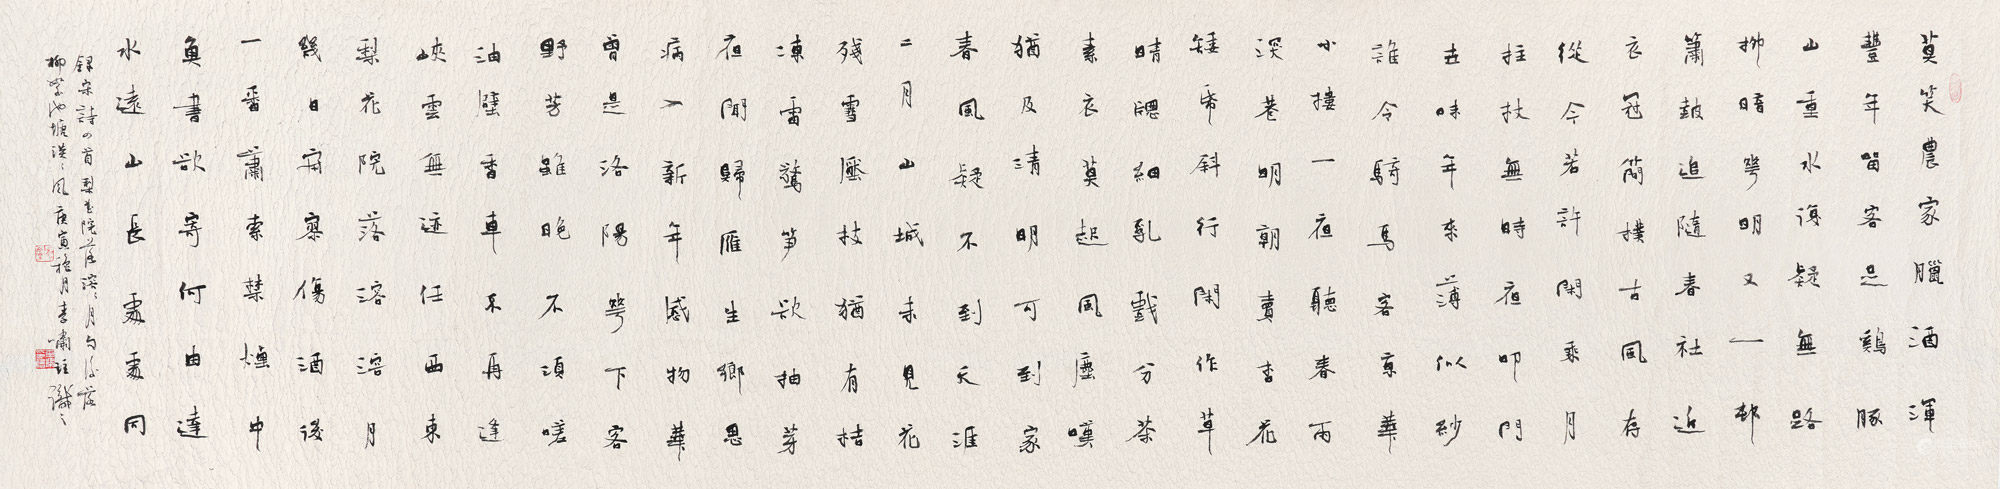 莫笑農家臘酒渾
豐年畱客足鷄豚
山重水複疑無路
柳暗華明又一邨
簫鼓追隨春社近
衣冠簡樸古風存
從今若許閑乘月
拄杖無時夜叩門
世味年來薄似紗
誰令騎馬客京華
小樓一夜聽春雨
深巷明朝賣杏花
矮紙斜行閑作草
晴窗細乳戲分茶
素衣莫起風塵嘆
猶及清明可到家
春風疑不到天涯
二月山城未見花
殘雪壓枝猶有桔
凍雷驚筍欲抽芽
夜聞歸雁生鄉思
病入新年感物華
曾是洛陽華下客
野芳雖晚不須嗟
油壁香車不再逢
峽雲無迹任西東
梨花院落溶溶月
幾日寂寥傷酒後
一番蕭索禁煙中
魚書欲寄何由達
水遠山長處處同
録宋詩四首梨花院落溶溶月句後落
柳絮池塘淡淡風庚寅極月李嘯識之